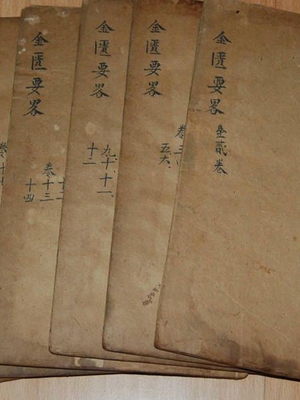 金匱要畧
壹貳卷
金匱要畧
卷三四
五六
金匱要畧
九十、十一、
十二
金匱要畧
卷十三
十四